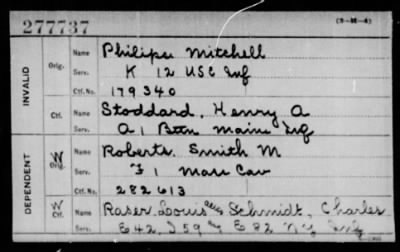 277737
(3-M-4)
INVALID
Orig.
Name Philips Mitchell
Serv. K 12 USC Inf
Ctf. No. 179340
Ctf.
Name Stoddard, Henry A
Serv. A 1 Battn Maine Inf
DEPENDENT
W Orig.
Name Roberts. Smith M
Serv. F 1 Mass Cav
Ctf. No. 282613
W Ctf.
Name Raser, Louis alias Schmidt, Charles
Serv. E 42, I 59 & E 82 NY Inf